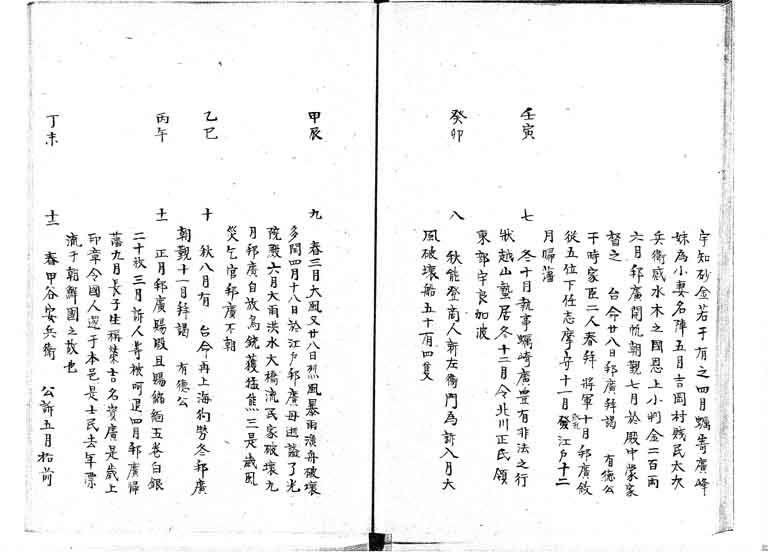 宇知砂金若干有之四月蠣崎廣峰
妹為小妻名陣五月吉岡村賤民太次
兵衛感水木之國恩上小判金二百両
六月邦廣開帆朝觀七月於殿中蒙家
督之　台命廿八日邦廣拜謁　有德公
于時家臣二人奉拜　將軍十月邦廣敘
從五位下任志摩守十一月發江戶十二
月歸藩
壬寅　七　冬十月執事蠣崎廣豊有非法之行
狀越山蟄居冬十二月令北川正氏領
東部宇良如波
癸卯　八　秋能登商人新左衛門為訴八月大
風破壞船五十有四隻
甲辰　九　春三月大風又廿八日烈風暴雨漁舟破壞
多閏四月十八日於江戶邦廣母逝謚了光
院殿六月大雨洪水大橋流民家破壞九
月邦廣自放鳥銃獲猛熊三是歲風
災乞官邦廣不朝
乙巳　十　秋八月有　台命再上海狗腎冬邦廣
朝觀十一月拜謁　有德公
丙午　十一　正月邦廣賜暇且賜綿緬五卷白銀
二十枚三月訴人等被呵退四月邦廣歸
藩九月長子生稱榮吉名資廣是歲上
印章令國人還于本邑是士民去年漂
流于朝鮮國之故也
丁未　十二　春甲谷安兵衛　公訴五月松前